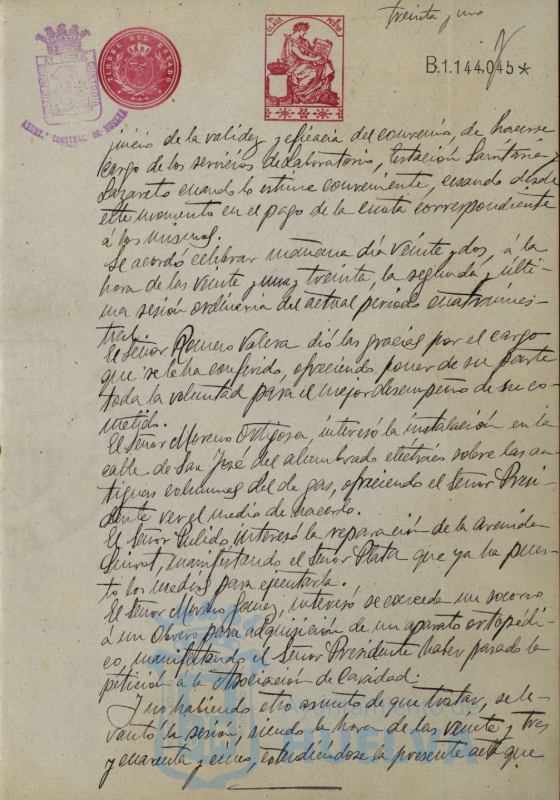 treinta y uno
TIMBRE DEL ESTADO
8ª CLASE 1 PESETA
B.1.144.045*
juicio de la validez y eficacia del convenio, de hacerse
cargo de los servicios de Laboratorio, Estación Sanitaria y
Lazareto cuando lo estime conveniente, cesando desde
este momento en el pago de la cuota correspondiente
á los mismos.
Se acordó celebrar mañana día veinte y dos, á la
hora de las veinte y una y treinta, la segunda y últi-
ma sesión ordinaria del actual periodo cuatrimes-
tral.
El Señor Romero Valera dió las gracias por el cargo
que se le ha conferido, ofreciendo poner de su parte
toda la voluntad para el mejor desempeño de su co-
metido.
El Señor Moreno Ortigosa, interesó la instalación en la
calle de San José del alumbrado electrico sobre las an-
tiguas columnas del de gas, ofreciendo el Señor Presi-
dente ver el medio de hacerlo.
El Señor Pulido interesó la reparación de la avenida
manifestando el Señor Plata que ya ha pues-
to los medios para ejecutarla.
El Señor Moreno Gomez, interesó se conceda un socorro
á un Obrero para adquisición de un aparato ortopédi-
co, manifestando el Señor Presidente haber pasado la
petición a la Asociación de Caridad.
Y no habiendo otro asunto de que tratar, se le-
vantó la sesión, siendo la hora de las veinte y tres
y cuarenta y cinco, extendiéndose la presente acta que